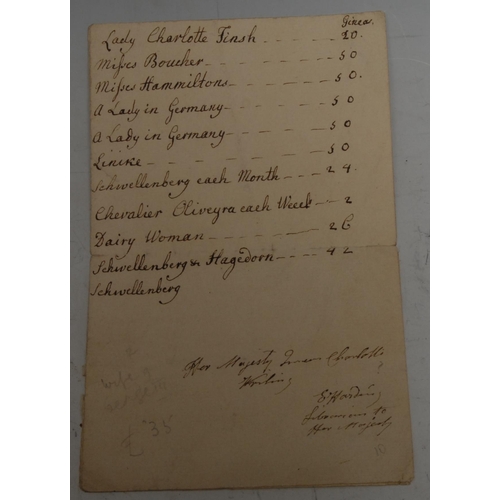 Ginea.
Lady Charlotte Finsh - - - - 20.
Misses Boucher - - - - - 50
Misses Hammiltons - - - - 50.
A Lady in Germany - - - - 50
A Lady in Germany - - - - 50
Linike - - - - - - 50
Schwellenberg each Month - - - - 24.
Chevalier Oliveyra each Week - - 2
Dairy Woman - - - - - 26
Schwellenberg & Hagedorn - - - - 42
Schwellenberg
Her Majesty Queen Charlotte
Writing
E Harding
Librarian to
Her Majesty
£ 35
10